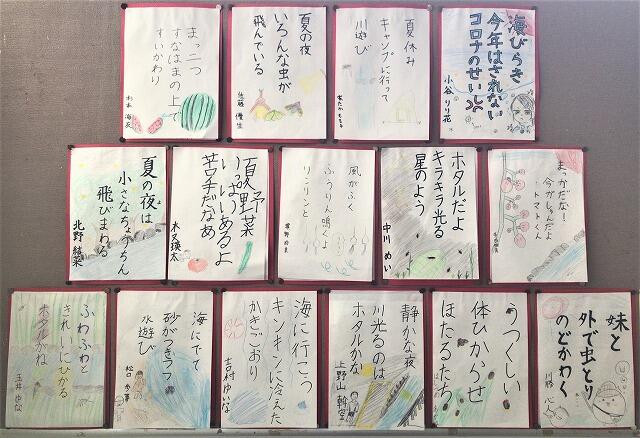 海びらき
今年はされない
コロナのせい
小谷 りり花
夏休み
キャンプに行って
川遊び
夏の夜
いろんな虫が
飛んでいる
佐藤 優生
まっ二つ
すなはまの上で
すいかわり
杉本 海衣
まっかだな!
今がしゅんだよ
トマトくん
ホタルだよ
キラキラ光る
星のよう
中川 めい
風がふく
ふうりん鳴くよ
リンリンと
夏野菜
いっぱいあるよ
苦手だなぁ
木又 瑛太
夏の夜は
小さなちょうちん
飛びまわる
北野 綾菜
妹と
外で虫とり
のどかわく
川勝 心人
うつくしい
体ひからせ
ほたるたち
静かな夜
川光るのは
ホタルかな
上野山 幹空
海に行こう
キンキンに冷えた
かきごおり
吉村 ゆいな
海にでて
砂がつきララ
水遊び
松口 歩事
ふわふわと
きれいにひかる
ホタルがね
玉井 ゆな